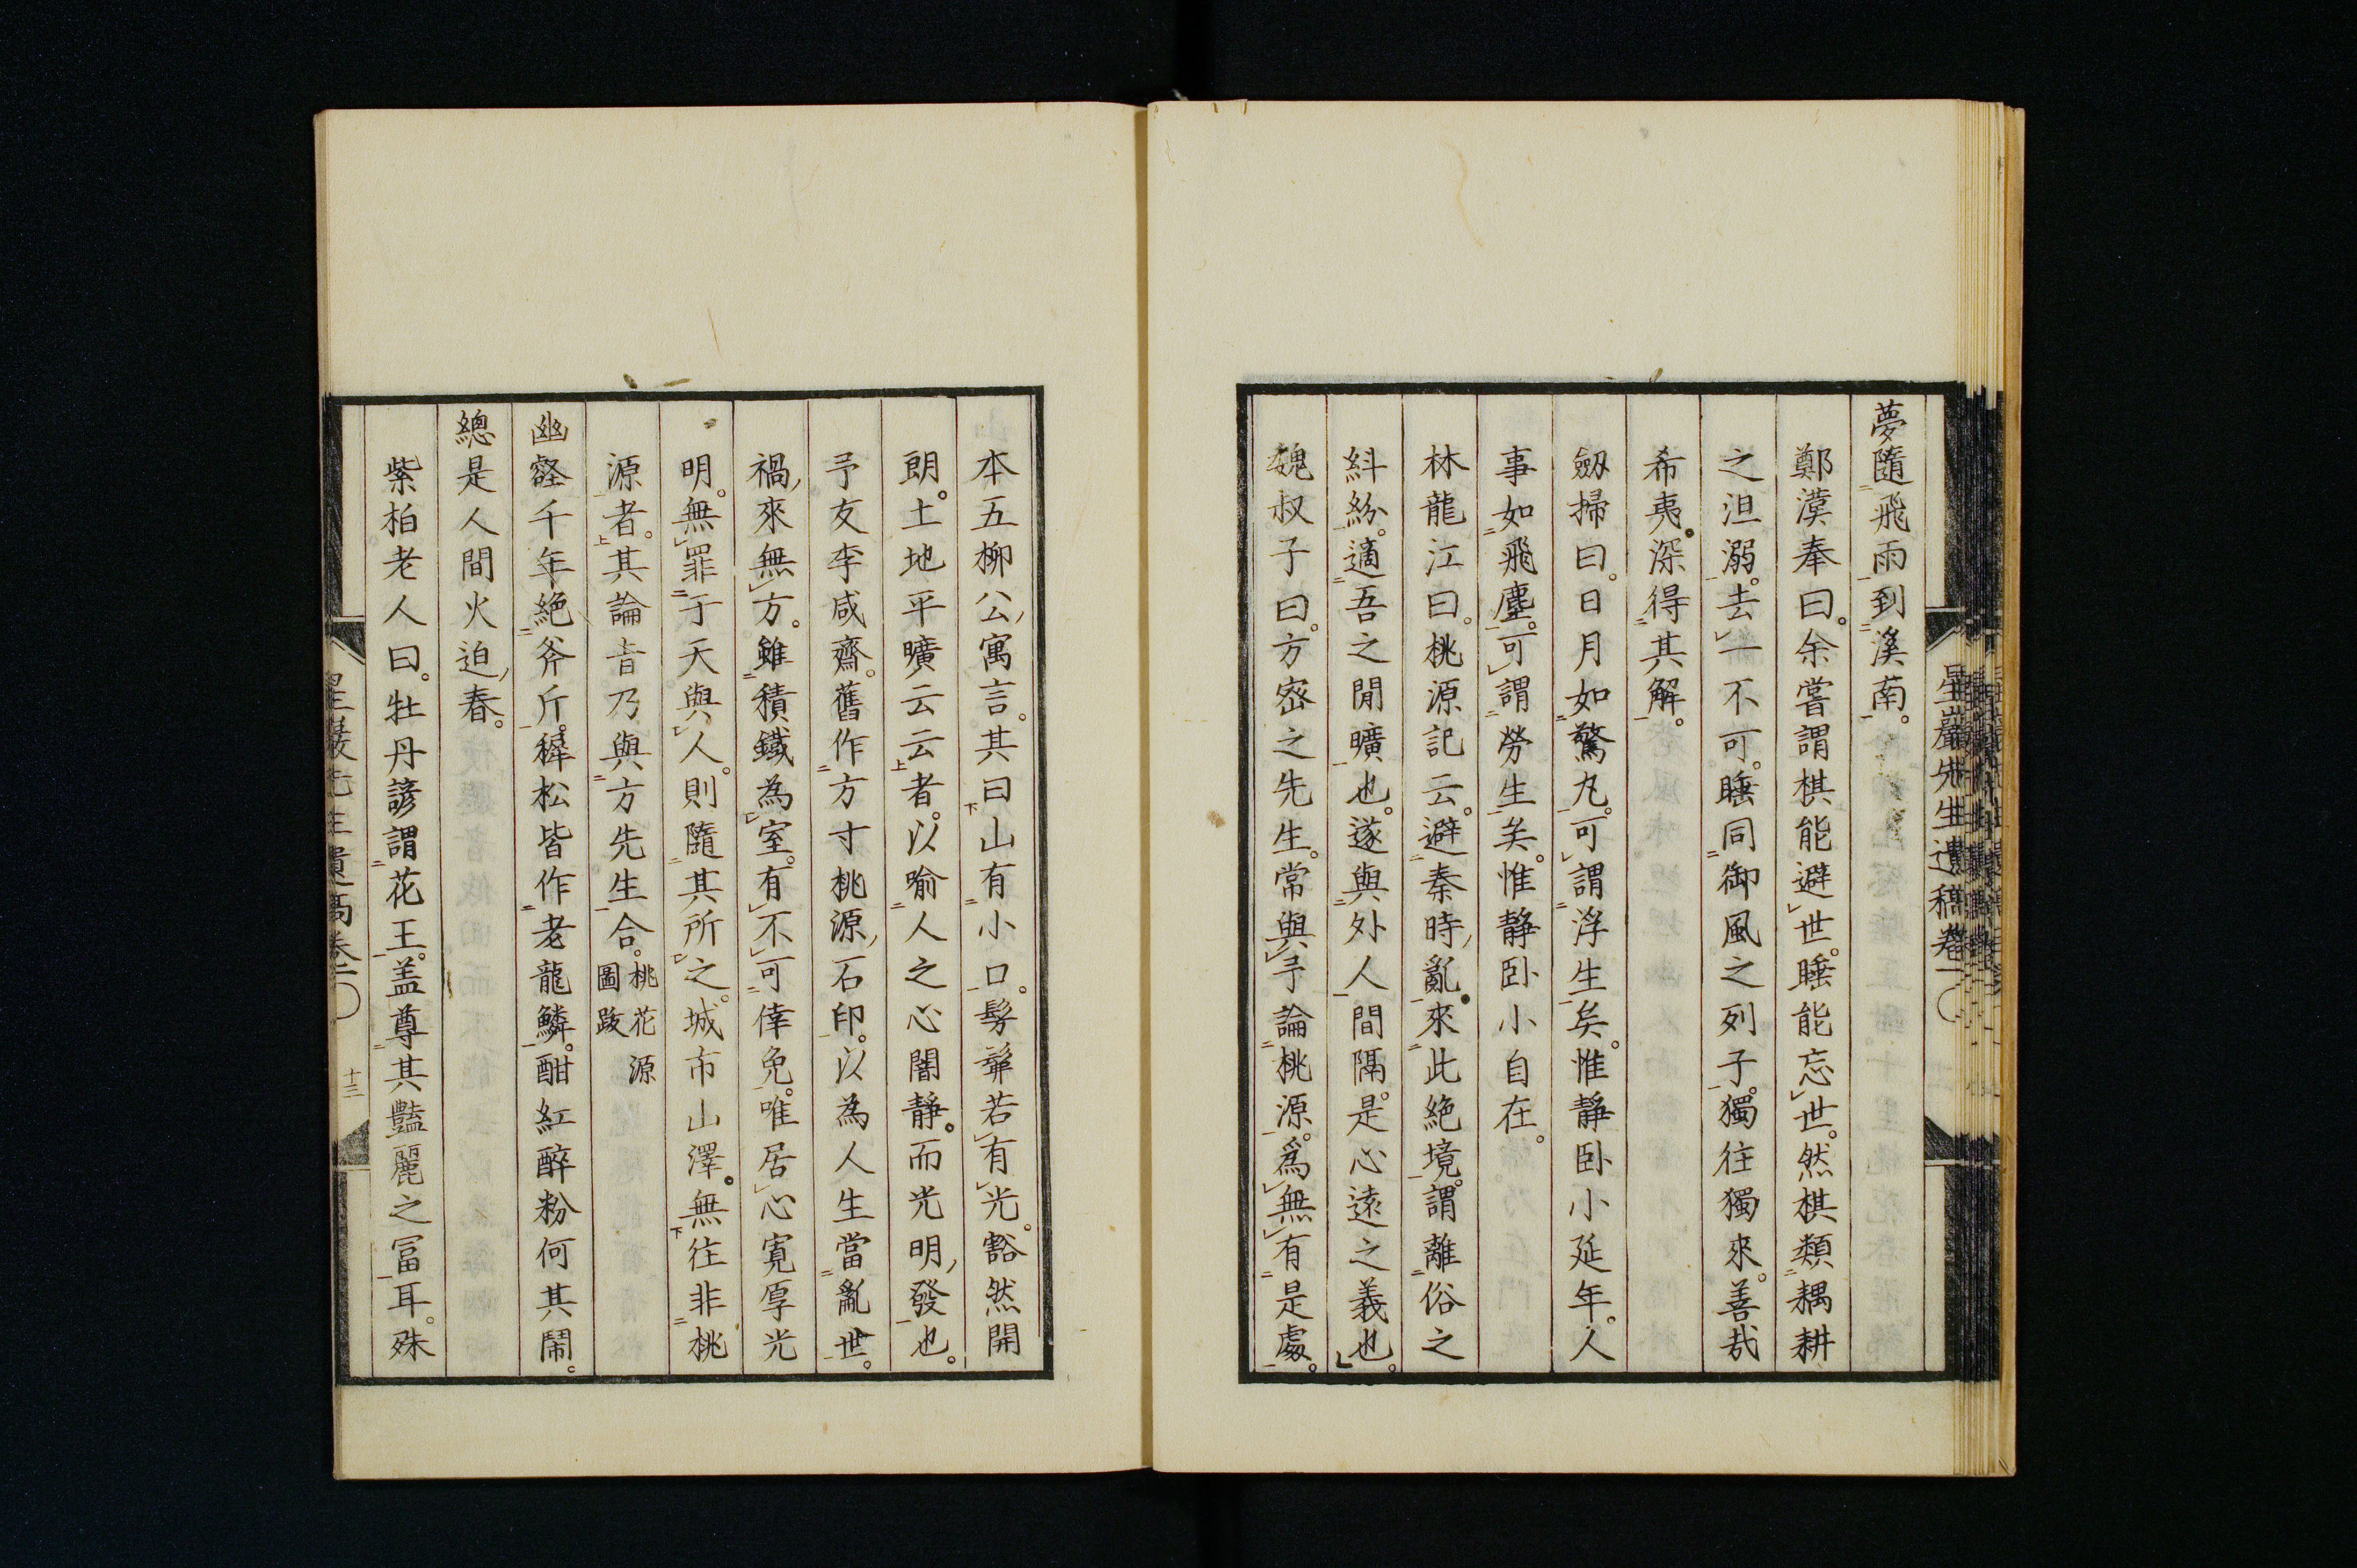 夢隨飛雨到溪南。
鄭漢奉曰。余嘗謂棋能避世。睡能忘世。然棋類耦耕
之沮溺。去一不可。睡同御風之列子。獨往獨來。善哉
希夷。深得其解。
劔掃曰。日月如驚丸。可謂浮生矣。惟靜卧小延年。人
事如飛塵。可謂勞生矣。惟靜卧小自在。
林龍江曰。桃源記云。避秦時亂。來此絶境。謂離俗之
糾紛。適吾之閒曠也。遂與外人間隔。是心遠之義也。
魏叔子曰。方密之先生。常與予論桃源。爲無有是處。
星巖先生遺稿卷
本五柳公寓言。其曰山有小口。髣髴若有光。豁然開
朗。土地平曠云云者。以喻人之心闇靜。而光明發也。
予友李咸齋。舊作方寸桃源石印。以為人生當亂世。
禍來無方。雖積鐵為室。有不可倖免。唯居心寬厚光
明。無罪于天與人。則隨其所之。城市山澤。無往非桃
源者。其論旨乃與方先生合。桃花源圖跋
幽壑千年絶斧斤。穉松皆作老龍鱗。酣紅醉粉何其鬧。
總是人間火迫春。
紫柏老人曰。牡丹諺謂花王。盖尊其豔麗之冨耳。殊
星巖先生遺稿卷二
十三